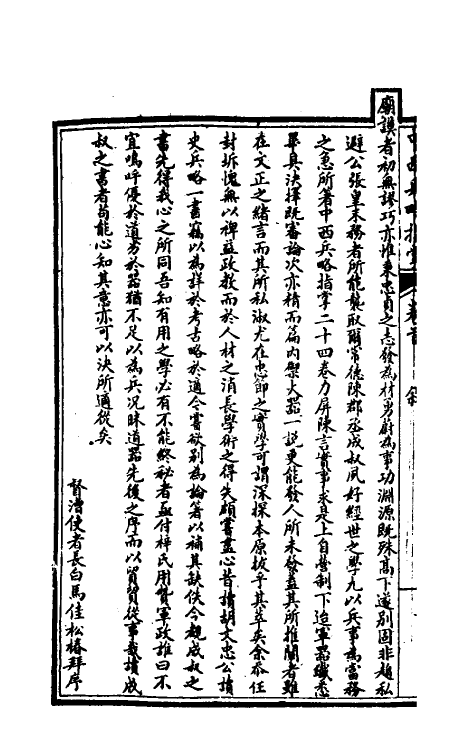 中西兵略指掌 卷首 敘
廟謨者初無謬巧亦惟秉忠貞之志發為材勇蔚為事功淵源既殊高下遂別固非趨私
避公張皇末務者所能襲取爾常德陳郡丞成叔夙好經世之學尤以兵事為當務
之急所著中西兵略指掌二十四卷力屏陳言實事求是上自營制下迨軍器纖悉
畢具決擇既審論次亦精而篇內禦大器一說更能發人所未發蓋其所推闡者雖
在文正之緒言而其所私淑尤在忠節之實學可謂深探本原拔乎其萃矣余忝任
封圻愧無以裨益政教而於人材之消長學術之得失頗嘗盡心昔擕胡文忠公讀
史兵略一書竊以為詳於考古略於適今嘗欲別為論著以補其缺佚今觀成叔之
書先得我心之所同吾知有用之學必有不能終秘者亟付梓氏用贊軍政誰曰不
宜嗚呼優於道劣於器猶不足以為兵況昧道器先後之序而以貿貿從事哉讀成
叔之書者苟能心知其意亦可以決所適從矣
督漕使者長白馬佳松椿拜序